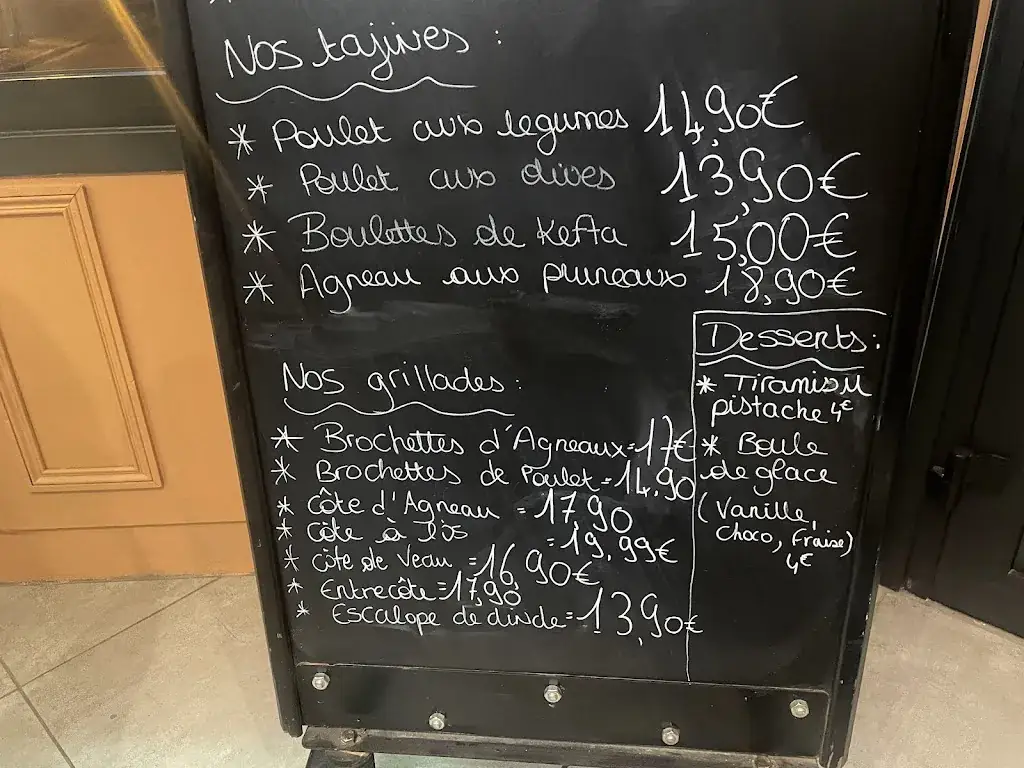 Nos tajines :
* Poulet aux legumes 14,90€
* Poulet aux olives 13,90€
* Boulettes de Kefta 15,00€
* Agneau aux pruneaux 18,90€
Nos grillades :
* Brochettes d'Agneaux = 17€
* Brochettes de Poulet = 14,90
* Côte d'Agneau = 17,90
* Côte à l'os = 19,99€
* Côte de Veau = 16,90€
* Entrecôte = 17,90
* Escalope de dinde = 13,90€
Desserts :
* Tiramisu
pistache 4€
* Boule
de glace
(Vanille,
Choco, Fraise)
4€